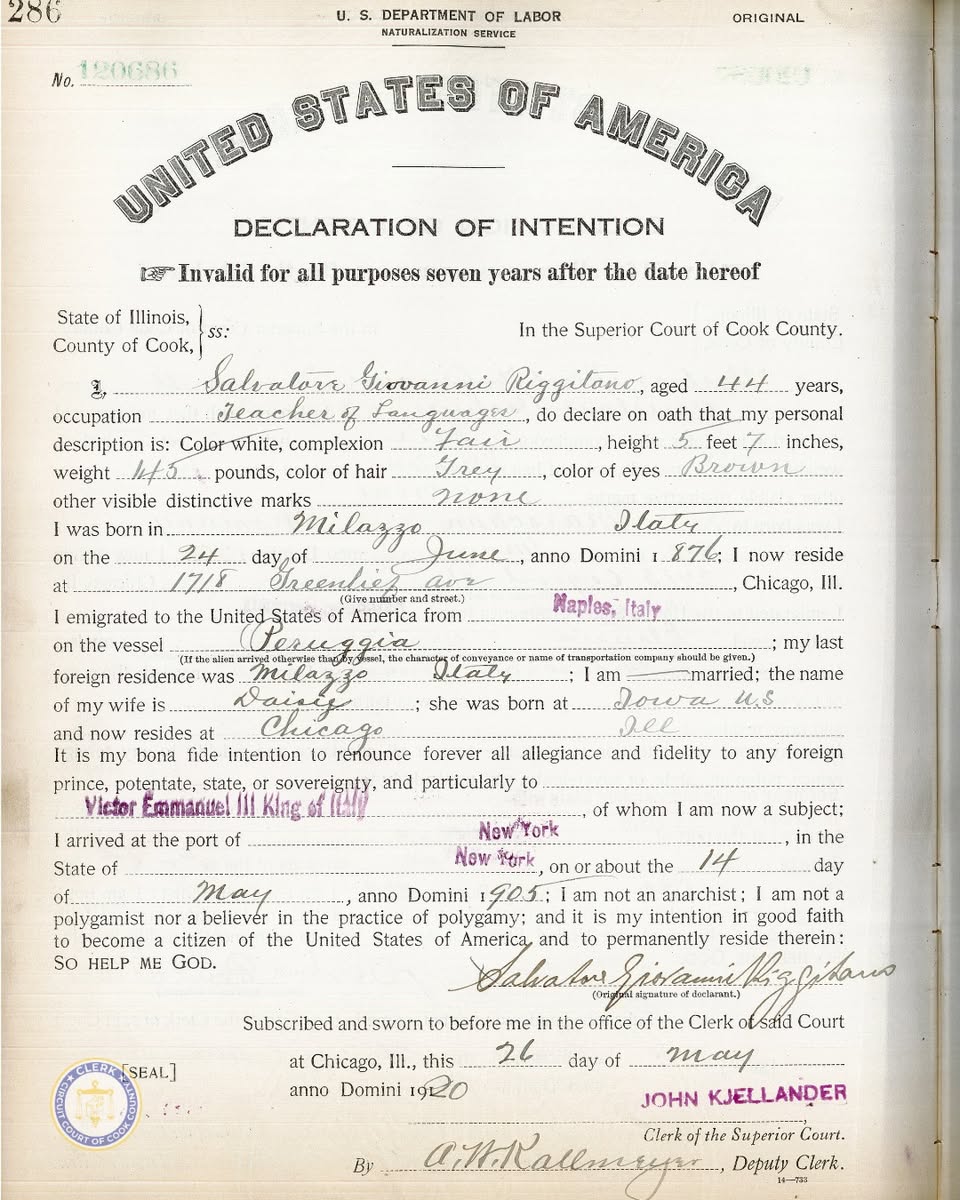 286
U. S. DEPARTMENT OF LABOR
NATURALIZATION SERVICE
ORIGINAL
No. 120686
UNITED STATES OF AMERICA
DECLARATION OF INTENTION
☞ Invalid for all purposes seven years after the date hereof
State of Illinois,
County of Cook, } ss: In the Superior Court of Cook County.
I, Salvatore Giovanni Riggitano, aged 44 years,
occupation Teacher of Languages, do declare on oath that my personal
description is: Color white, complexion Fair, height 5 feet 7 inches,
weight 145 pounds, color of hair Grey, color of eyes Brown
other visible distinctive marks none
I was born in Milazzo Italy
on the 24 day of June, anno Domini 1 876; I now reside
at 1718 Greenlief ave, Chicago, Ill.
(Give number and street.)
I emigrated to the United States of America from Naples, Italy
on the vessel Peruggia; my last
(If the alien arrived otherwise than by vessel, the character of conveyance or name of transportation company should be given.)
foreign residence was Milazzo Italy; I am married; the name
of my wife is Daisy; she was born at Iowa U.S
and now resides at Chicago Ill
It is my bona fide intention to renounce forever all allegiance and fidelity to any foreign
prince, potentate, state, or sovereignty, and particularly to
Victor Emmanuel III King of Italy, of whom I am now a subject;
I arrived at the port of New York, in the
State of New York, on or about the 14 day
of May, anno Domini 1905; I am not an anarchist; I am not a
polygamist nor a believer in the practice of polygamy; and it is my intention in good faith
to become a citizen of the United States of America and to permanently reside therein:
SO HELP ME GOD.
Salvatore Giovanni Riggitano
(Original signature of declarant.)
Subscribed and sworn to before me in the office of the Clerk of said Court
[SEAL] at Chicago, Ill., this 26 day of May
anno Domini 1920
CLERK CIRCUIT COURT OF COOK COUNTY
JOHN KJELLANDER
Clerk of the Superior Court.
By A. W. Kallmeyer, Deputy Clerk.
14—733